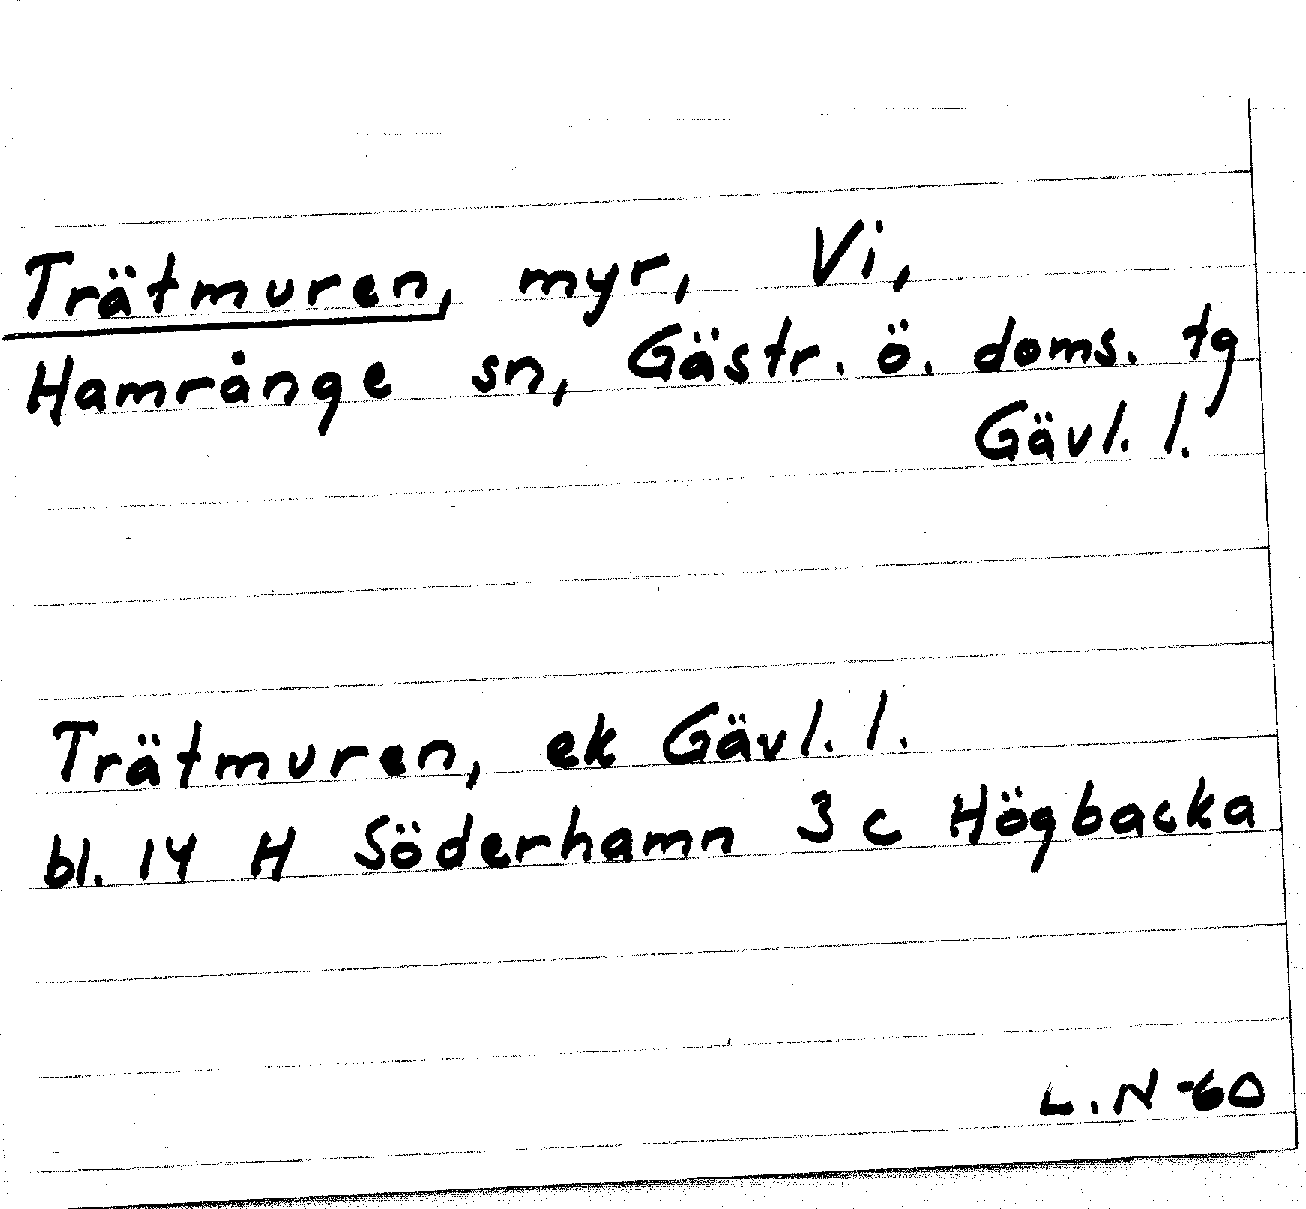 Trätmuren, myr, Vi,
Hamrånge sn, Gästr. ö. doms. tg
Gävl. l.
Trätmuren, ek Gävl. l.
bl. 14 H Söderhamn 3 c Högbacka
L.N -60